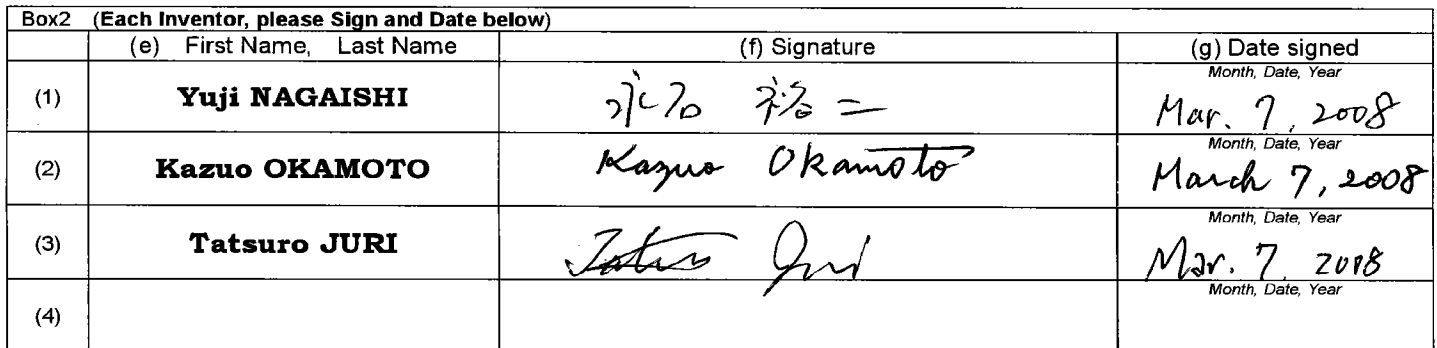 Box2 (Each Inventor, please Sign and Date below)
(e) First Name, Last Name (f) Signature (g) Date signed
(1) Yuji NAGAISHI 永石 裕二 Month, Date, Year
Mar. 7, 2008
(2) Kazuo OKAMOTO Kazuo Okamoto Month, Date, Year
March 7, 2008
(3) Tatsuro JURI Month, Date, Year
Mar. 7. 2008
(4) Month, Date, Year